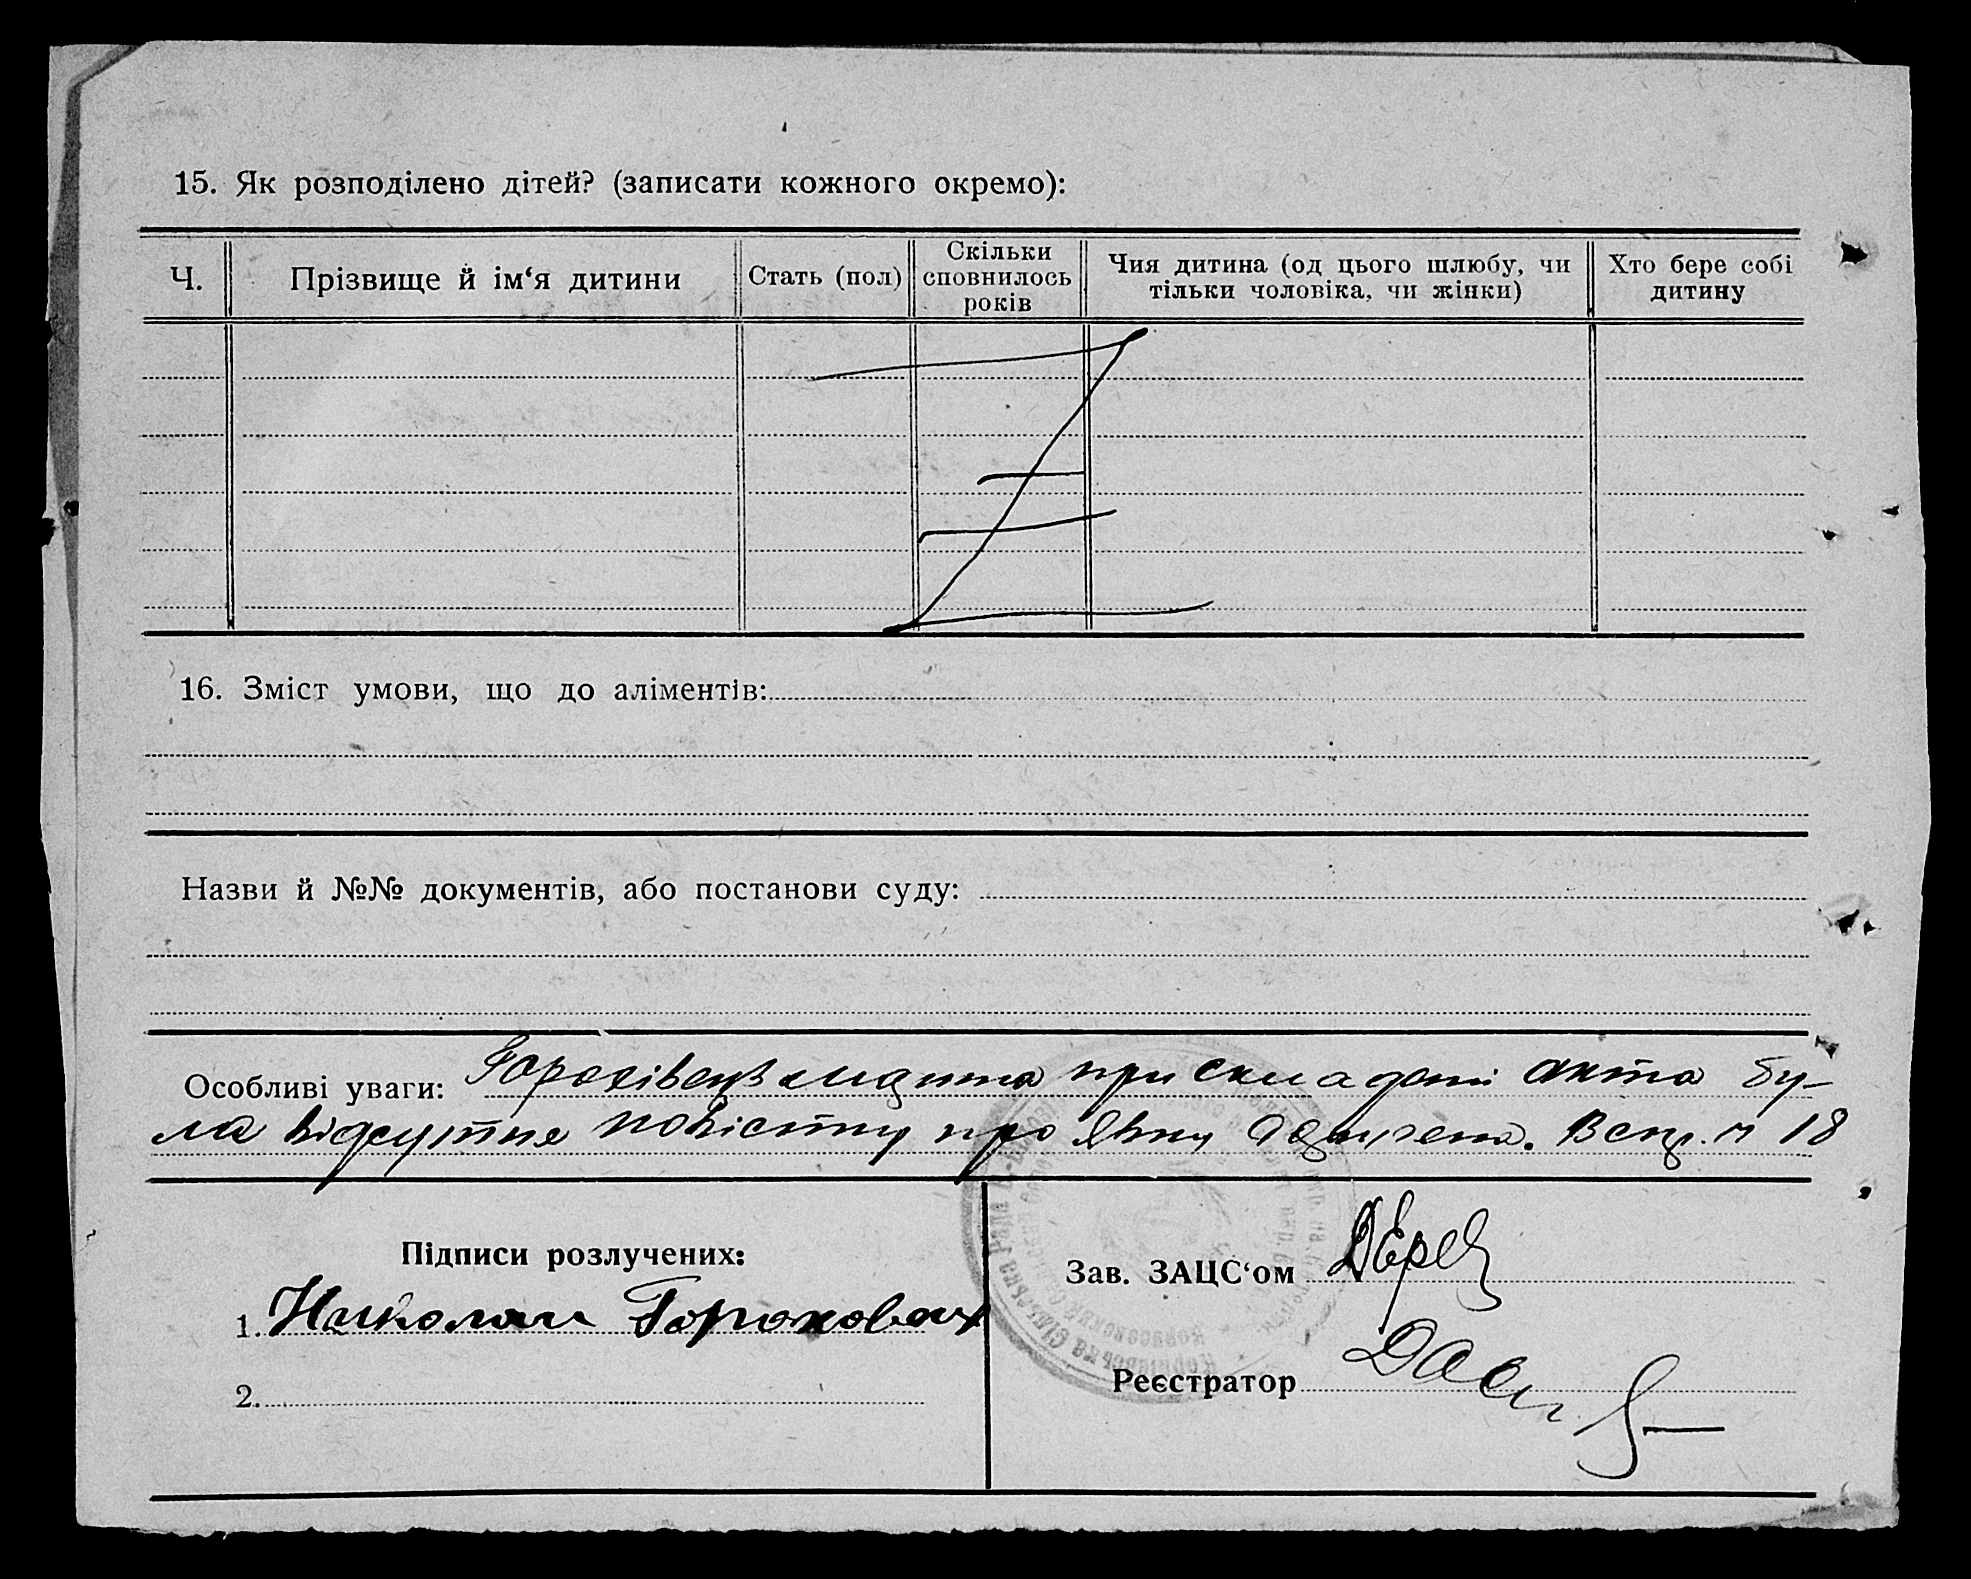 15. Як розподілено дітей? (записати кожного окремо):
Ч.
Прізвище й ім‘я дитини
Стать (пол)
Скільки сповнилось років
Чия дитина (од цього шлюбу, чи тільки чоловіка, чи жінки)
Хто бере собі дитину
16. Зміст умови, що до аліментів:
Назви й №№ документів, або постанови суду:
Особливі уваги: при складані акта бу-
ла відсутня повістку про явку
18
Підписи розлучених:
1. Николай Гороховац
2.
Зав. ЗАЦС‘ом
Реєстратор